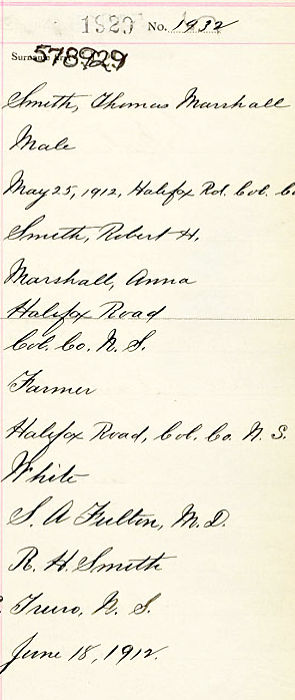 1929 No. 1932
578929
Smith, Thomas Marshall
Male
May 25, 1912, Halifax Rd. Col. Co
Smith, Robert H.
Marshall, Anna
Halifax Road
Col. Co. N. S.
Farmer
Halifax Road, Col. Co. N. S.
White
S. A Fulton, M. D.
R. H. Smith
Truro, N. S.
June 18, 1912.